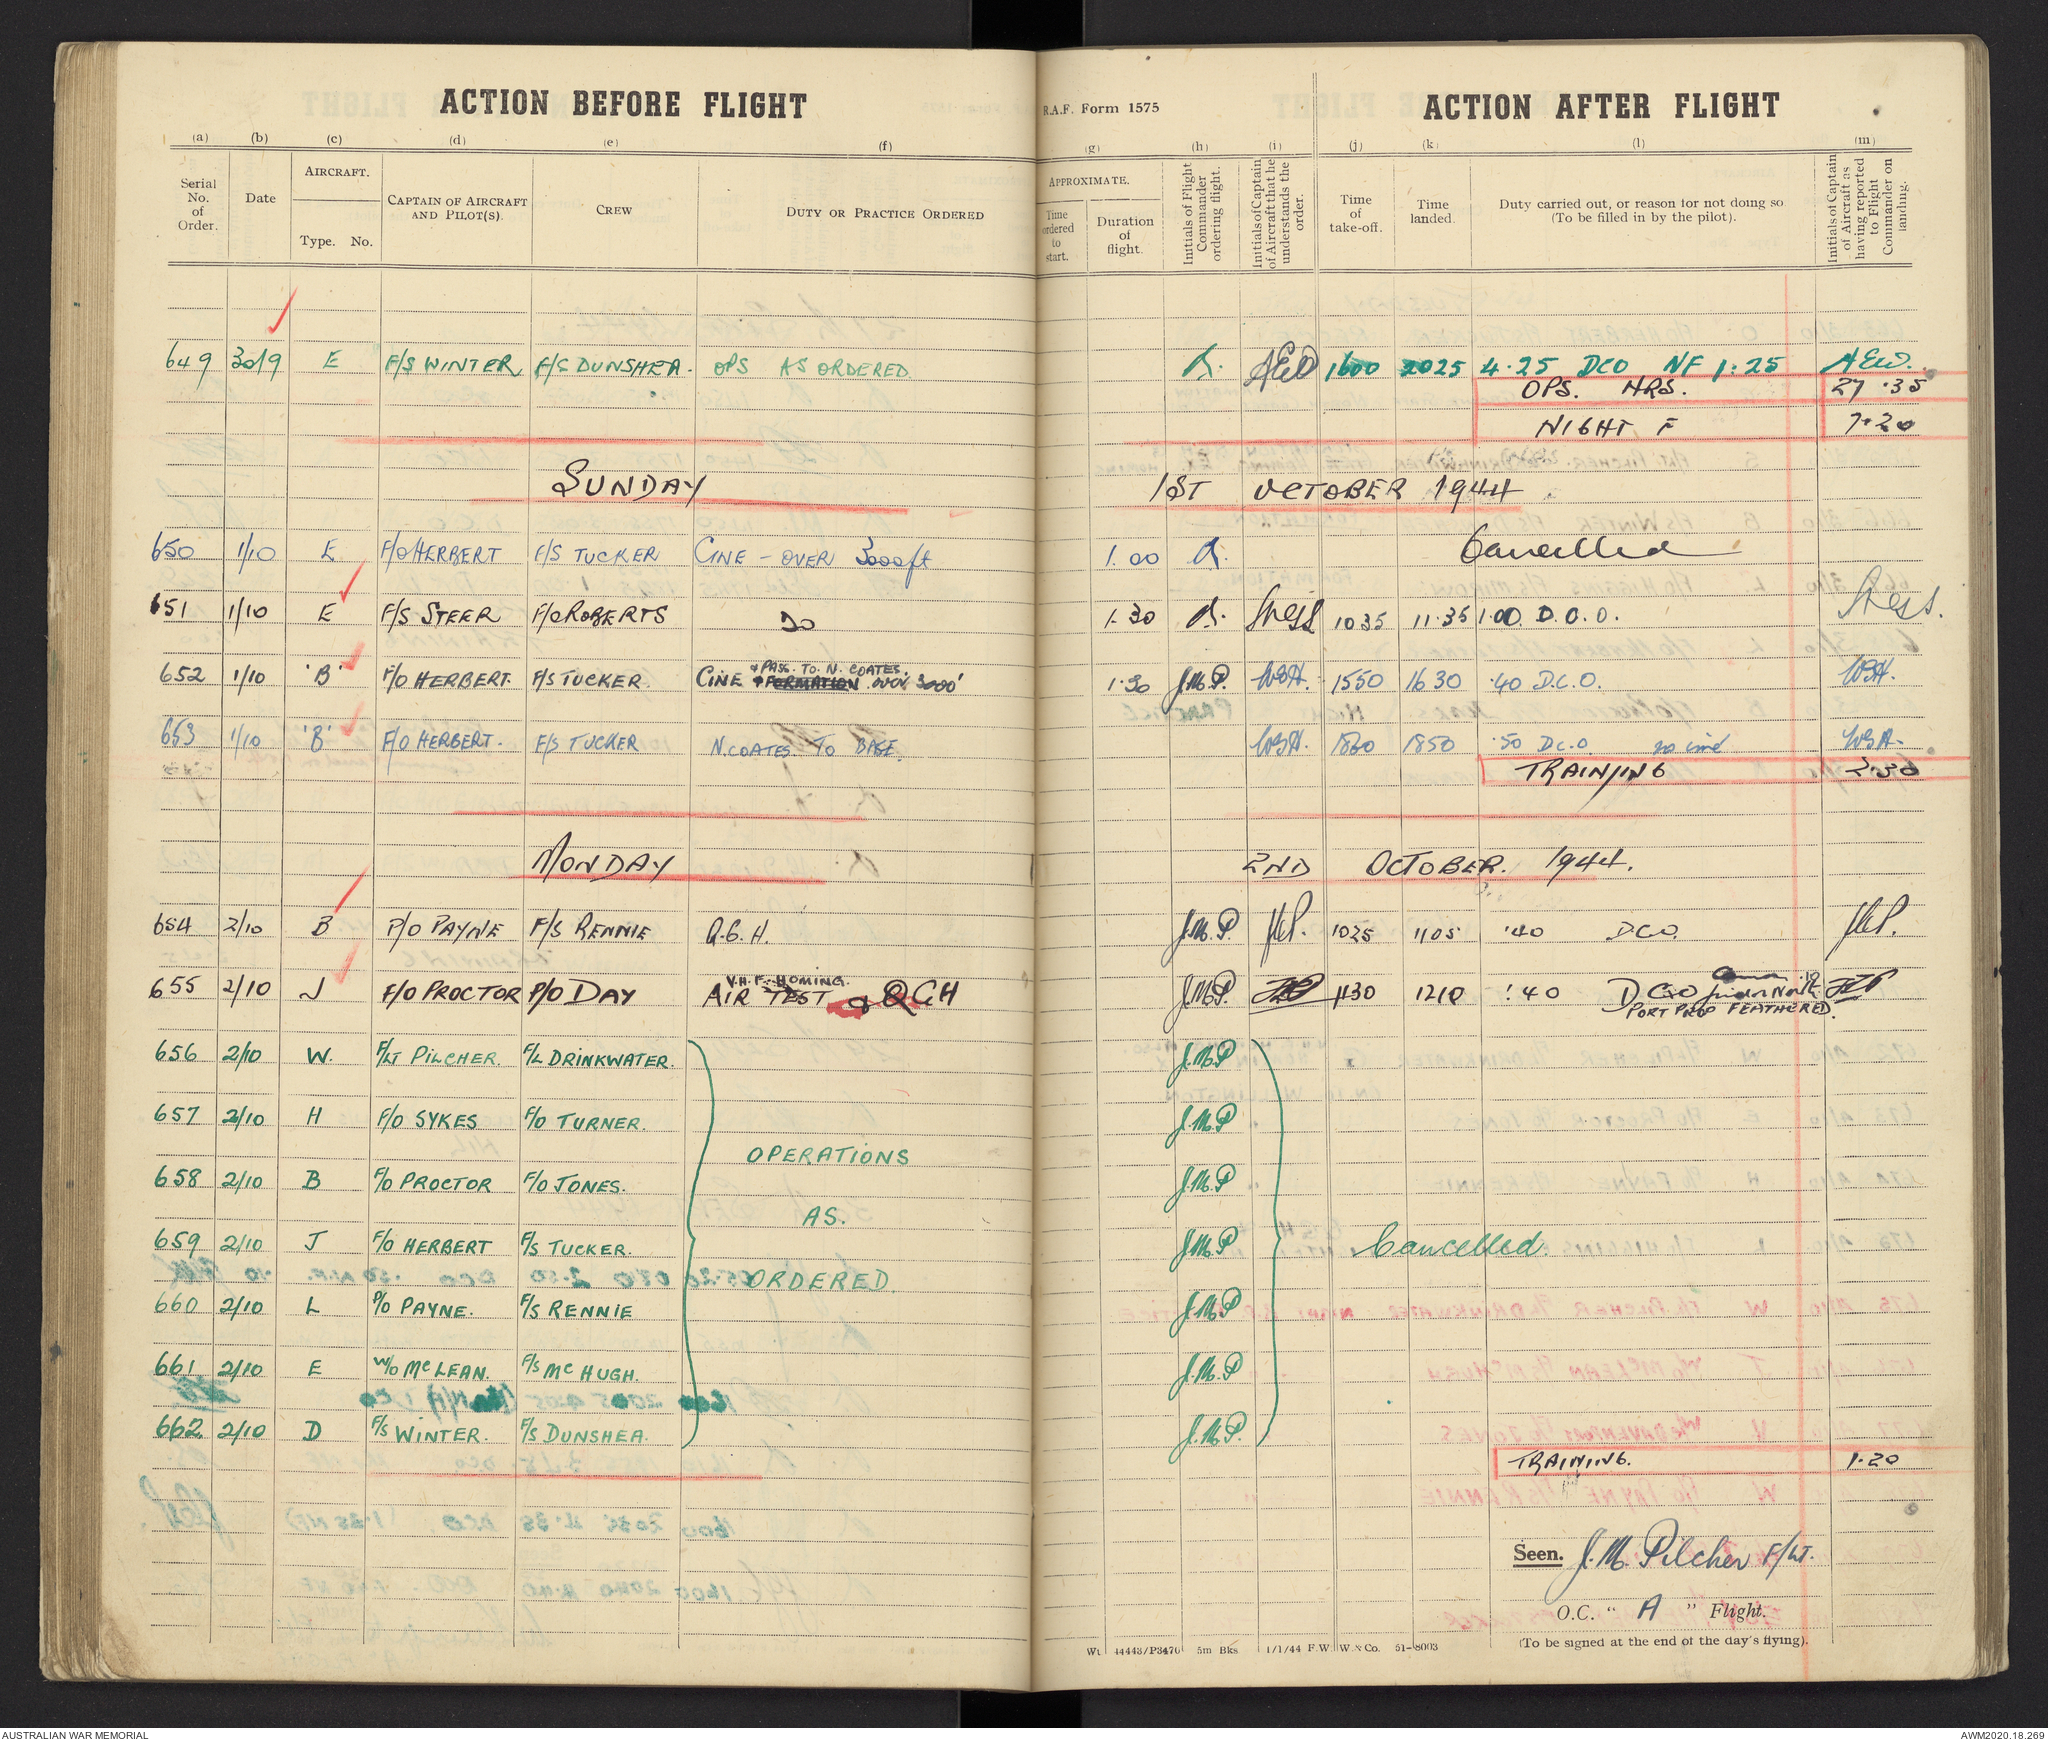 ACTION BEFORE FLIGHT R.A.F. Form 1575 ACTION AFTER FLIGHT
(a) (b) (c) (d) (e) (f) (g) (h) (i) (j) (k) (l) (m)
Serial No. of Order. Date AIRCRAFT. Type. No. CAPTAIN OF AIRCRAFT AND PILOT(S). CREW DUTY OR PRACTICE ORDERED APPROXIMATE. Time ordered to start. Duration of flight. Initials of Flight Commander ordering flight. Initials of Captain of Aircraft that he understands the order. Time of take-off. Time landed. Duty carried out, or reason for not doing so (To be filled in by the pilot). Initials of Captain of Aircraft as having reported to Flight Commander on landing.
649 30/9 E F/S WINTER F/S DUNSHEA. OPS AS ORDERED AEW 1600 2025 4.25 DCO NF 1.25 AEW.
OPS. HRS. 27.35
NIGHT F 7.20
SUNDAY 1ST OCTOBER 1944
650 1/10 E F/O HERBERT F/S TUCKER CINE - OVER 3000ft 1.00 Cancelled
651 1/10 E F/S STEER F/O ROBERTS DO 1.30 1035 11.35 1.00 D.C.O.
652 1/10 'B' F/O HERBERT. F/S TUCKER. CINE & PASS. TO. N. COATES. FORMATION OVER 3000' 1.30 J.M.P. WBH. 1550 1630 .40 D.C.O. WBH.
653 1/10 'B' F/O HERBERT. F/S TUCKER N. COATES TO BASE. WBH. 1800 1850 .50 D.C.O no cine WBH.
TRAINING 2.30
MONDAY 2ND OCTOBER. 1944.
654 2/10 B P/O PAYNE F/S RENNIE Q.G.H. J.M.P. 1025 1105 .40 DCO.
655 2/10 J F/O PROCTOR P/O DAY AIR TEST V.H.F. HOMING. & QGH J.M.P. 1130 1210 .40 DCO
PORT PROP FEATHERED.
656 2/10 W. F/LT PILCHER. F/L DRINKWATER. J.M.P
657 2/10 H F/O SYKES F/O TURNER. J.M.P
OPERATIONS
658 2/10 B F/O PROCTOR F/O JONES. J.M.P
AS.
659 2/10 J F/O HERBERT F/S TUCKER. J.M.P Cancelled.
ORDERED.
660 2/10 L P/O PAYNE. F/S RENNIE J.M.P
661 2/10 E W/O McLEAN. F/S McHUGH. J.M.P
662 2/10 D F/S WINTER. F/S DUNSHEA. J.M.P.
TRAINING. 1.20
Seen. J. M. Pilcher F/LT.
O.C. " A " Flight.
(To be signed at the end of the day's flying).
Wt. 44443/P3470 5m Bks 1/1/44 F.W. W. & Co. 51-8003
AUSTRALIAN WAR MEMORIAL AWM2020.18.269